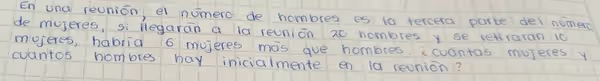 En una reunión, el número de hombres es la tercera parte del número
de mujeres, si llegarán a la reunión 20 hombres y se retiraran 10
mujeres, habría 6 mujeres más que hombres ¿cuántas mujeres y
cuántos hombres hay inicialmente en la reunión?